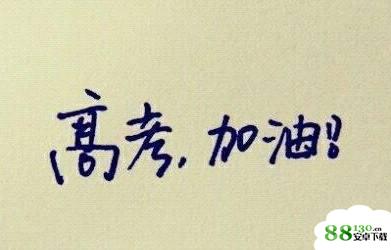 高考,加油!!
88130.cn
安卓下载